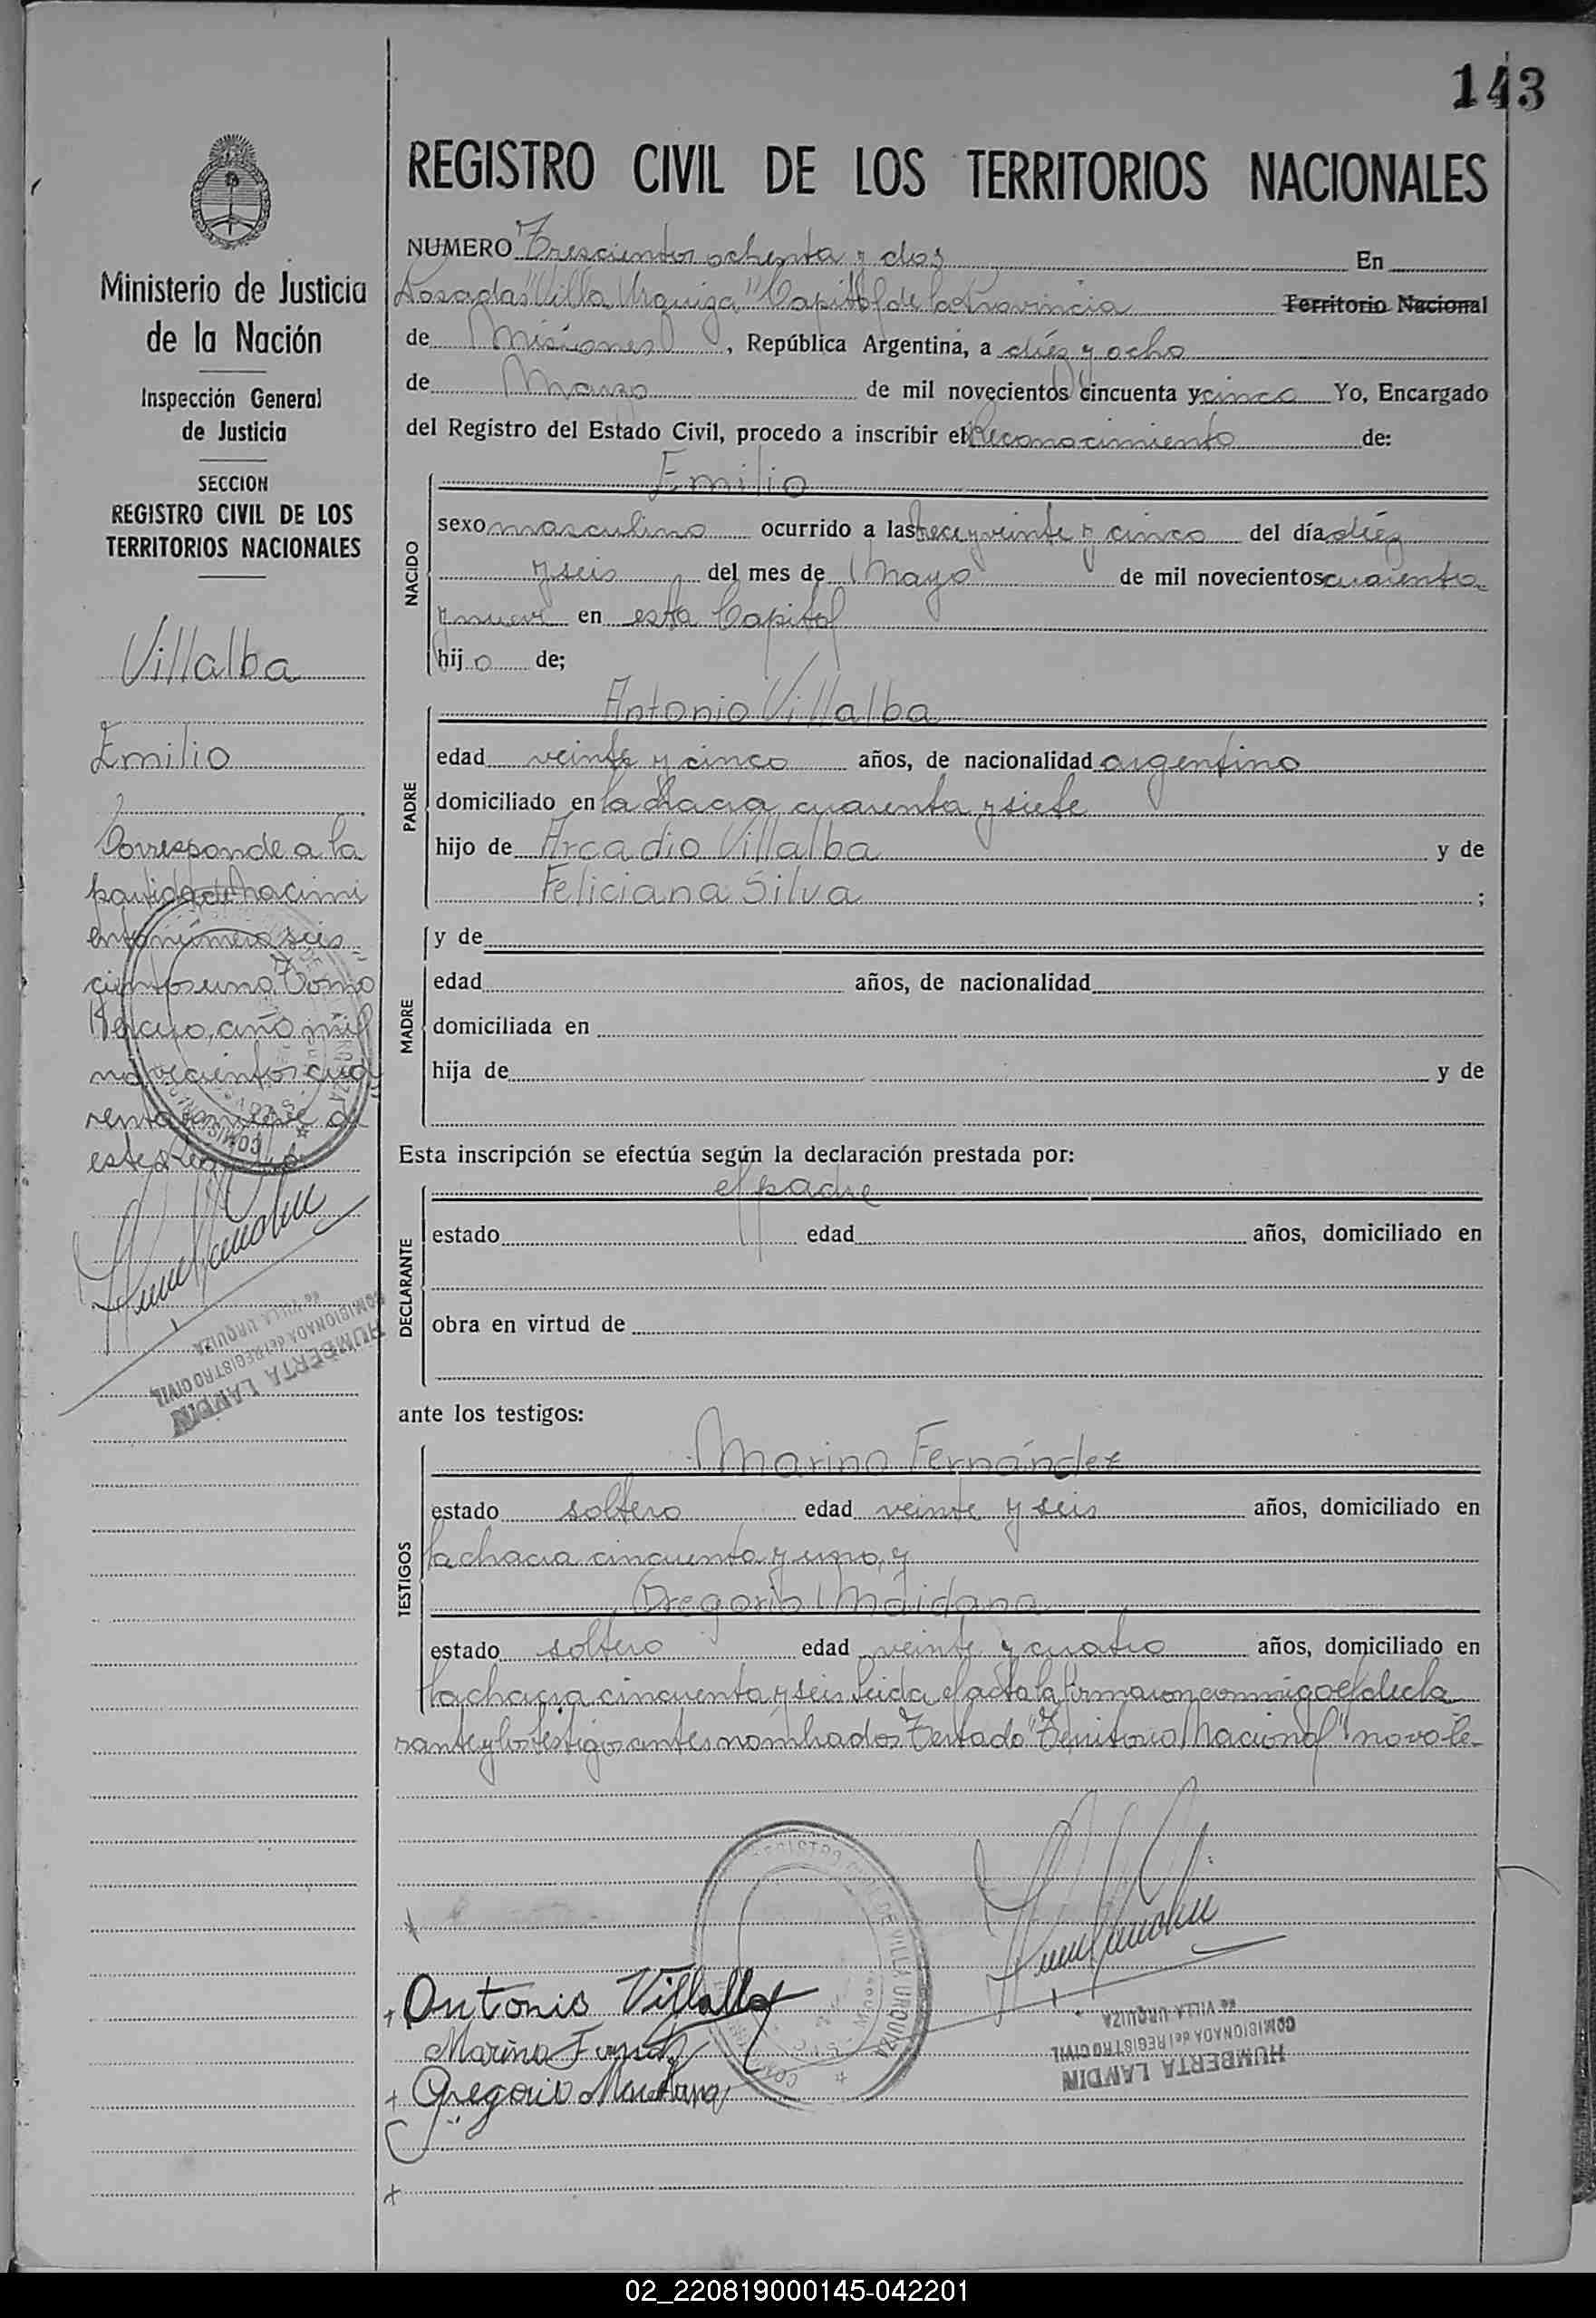 143
REGISTRO CIVIL DE LOS TERRITORIOS NACIONALES
Ministerio de Justicia
de la Nación
Inspección General
de Justicia
SECCION
REGISTRO CIVIL DE LOS
TERRITORIOS NACIONALES
Villalba
Emilio
Corresponde a la
partida de nacimi
ento número seis
cientos uno Tomo
tercero, año mil
novecientos cua
renta y nueve de
este
HUMBERTA LANDIN
COMISIONADA del REGISTRO CIVIL
de VILLA URQUIZA
NUMERO Trescientos ochenta y dos En
Posadas "Villa Urquiza" Capital de la Provincia Territorio Nacional
de Misiones, República Argentina, a diéz y ocho
de Marzo de mil novecientos cincuenta y cinco Yo, Encargado
del Registro del Estado Civil, procedo a inscribir el Reconocimiento de:
NACIDO
Emilio
sexo masculino ocurrido a las trece y veinte y cinco del día diéz
y seis del mes de Mayo de mil novecientos cuarenta
y nueve en esta Capital
hijo de;
PADRE
Antonio Villalba
edad veinte y cinco años, de nacionalidad argentino
domiciliado en la chacra cuarenta y siete
hijo de Arcadio Villalba y de
Feliciana Silva ;
MADRE
y de
edad años, de nacionalidad
domiciliada en
hija de y de
Esta inscripción se efectúa según la declaración prestada por:
DECLARANTE
el padre
estado edad años, domiciliado en
obra en virtud de
ante los testigos:
TESTIGOS
Marino Fernández
estado soltero edad veinte y seis años, domiciliado en
la chacra cincuenta y uno, y
Gregorio Maidana
estado soltero edad veinte y cuatro años, domiciliado en
la chacra cincuenta y seis Leida el acta la firmaron conmigo el decla
rante y los testigos antes nombrados Testado "Territorio Nacional" no vale
REGISTRO CIVIL DE VILLA URQUIZA
Antonio Villalba
Marino
Gregorio Maidana
HUMBERTA LANDIN
COMISIONADA del REGISTRO CIVIL
de VILLA URQUIZA
02_220819000145-042201